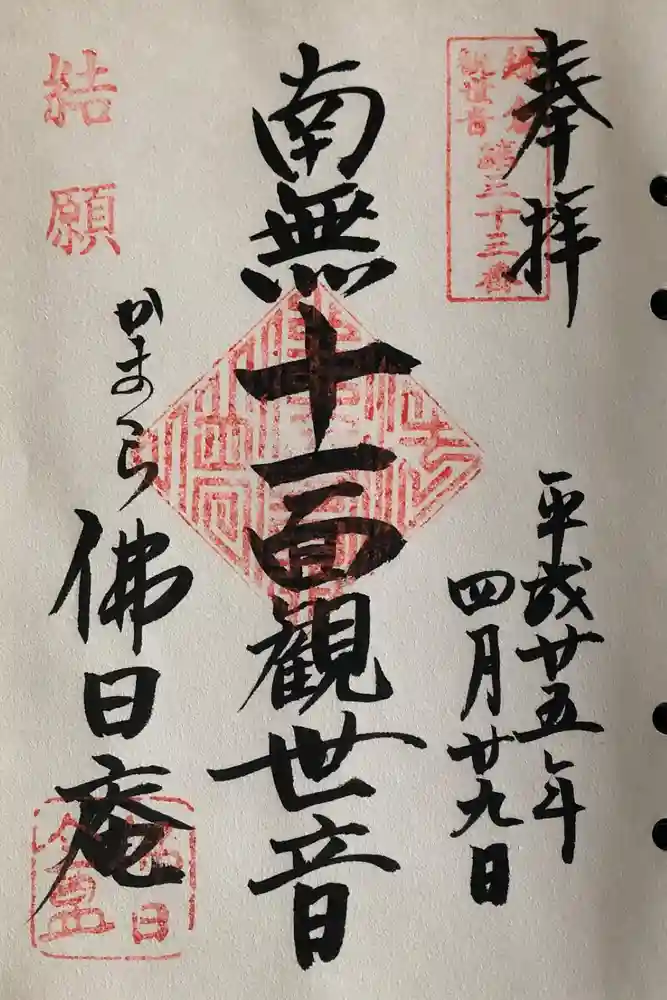 奉拝
鎌倉
観世音 第三十三番
平成廿五年
四月廿九日
南無十一面觀世音
結願
かまくら
佛日庵